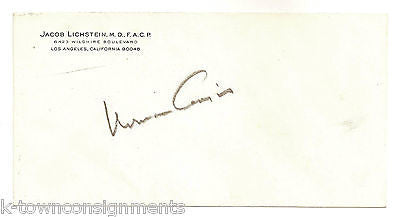 JACOB LICHSTEIN, M.D., F.A.C.P.
6423 WILSHIRE BOULEVARD
LOS ANGELES, CALIFORNIA 90048
k-townconsignments